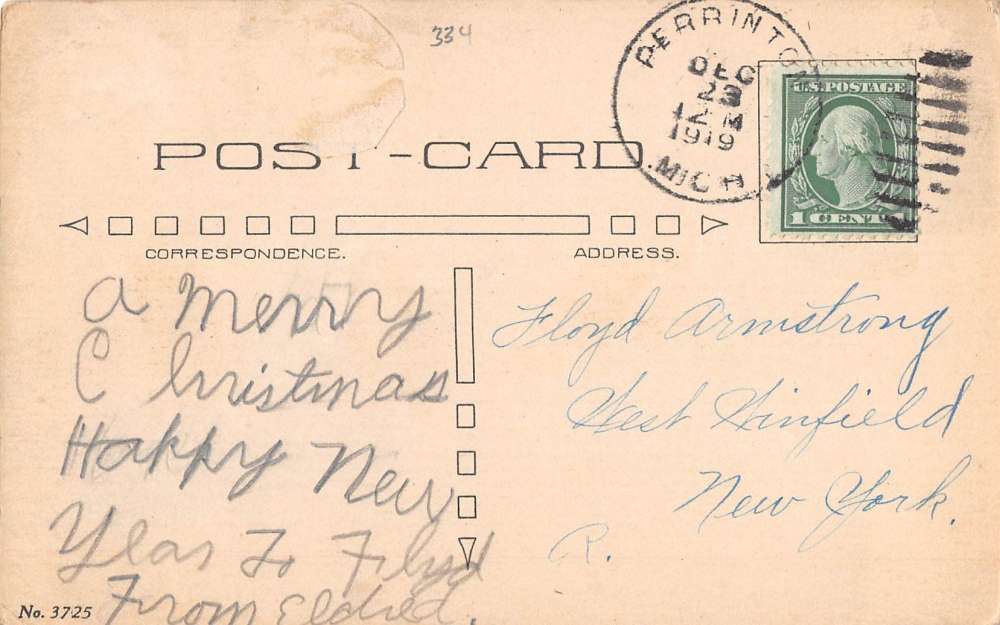 334
PERRINTON
DEC
23
12 M
1919
MICH.
U.S. POSTAGE
1 CENT 1
POST-CARD
CORRESPONDENCE.
ADDRESS.
a Merry
Christmas
Happy New
Year To Floyd
From Eldred.
Floyd Armstrong
West Winfield
New York.
R.
No. 3725